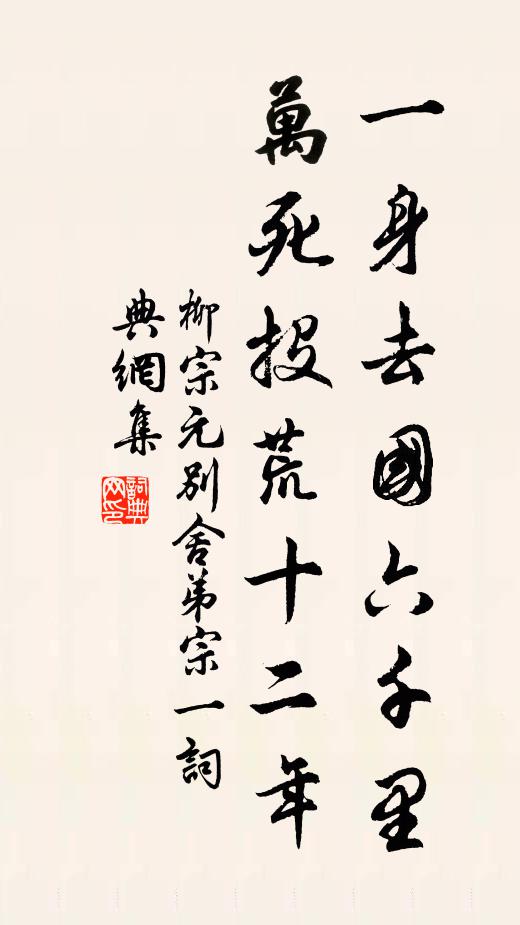 一身去國六千里
萬死投荒十二年
柳宗元別舍弟宗一詞
典網集
詞典網印